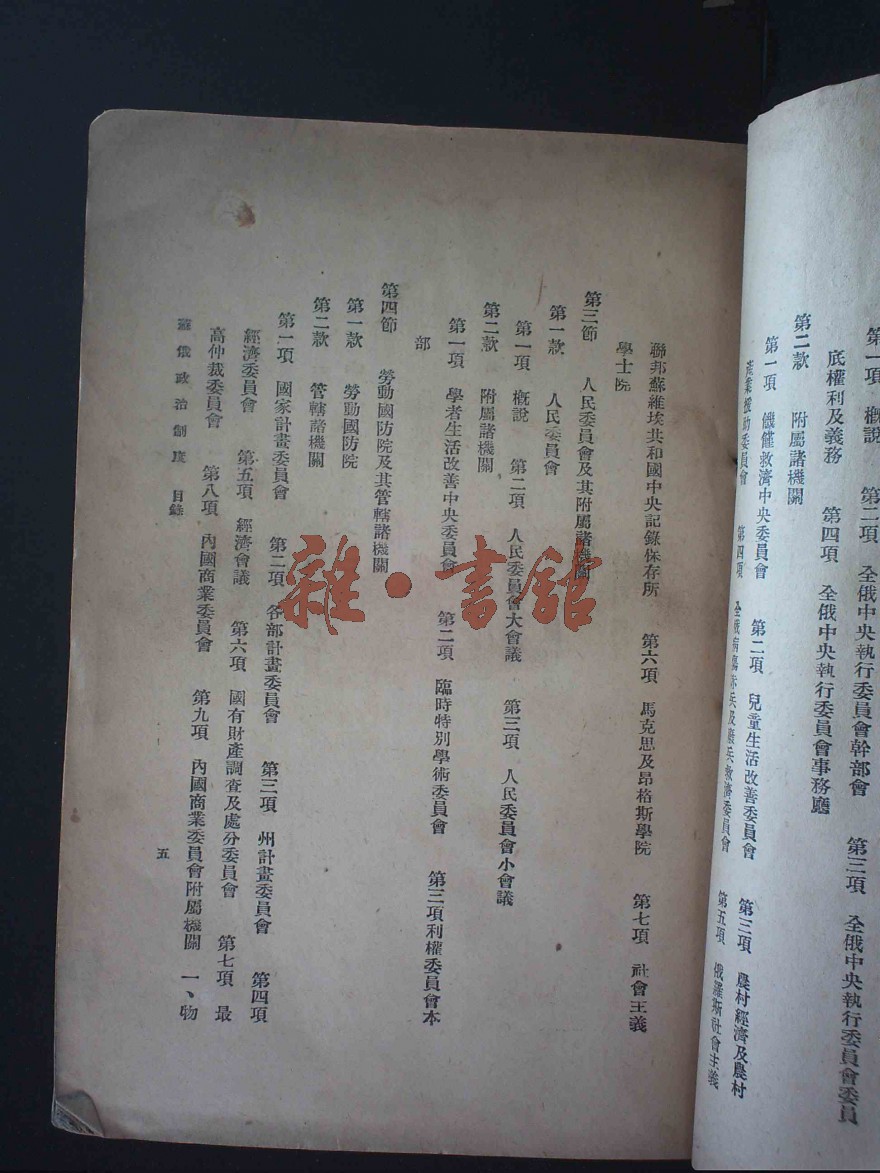 第一項 概說 第二項 全俄中央執行委員會幹部會 第三項 全俄中央執行委員會委員
底權利及義務 第四項 全俄中央執行委員會事務廳
第二款 附屬諸機關
第一項 饑饉救濟中央委員會 第二項 兒童生活改善委員會 第三項 農村經濟及農村
產業援助委員會 第四項 全俄病傷赤兵及廢兵救濟委員會 第五項 俄羅斯社會主義
聯邦蘇維埃共和國中央記錄保存所 第六項 馬克思及昂格斯學院 第七項 社會主義
學士院
第三節 人民委員會及其附屬諸機關
第一款 人民委員會
第一項 概說 第二項 人民委員會大會議 第三項 人民委員會小會議
第二款 附屬諸機關
第一項 學者生活改善中央委員會 第二項 臨時特別學術委員會 第三項利權委員會本
部
第四節 勞動國防院及其管轄諸機關
第一款 勞動國防院
第二款 管轄諸機關
第一項 國家計畫委員會 第二項 各部計畫委員會 第三項 州計畫委員會 第四項
經濟委員會 第五項 經濟會議 第六項 國有財產調查及處分委員會 第七項 最
高仲裁委員會 第八項 內國商業委員會 第九項 內國商業委員會附屬機關 一、物
蘇俄政治制度 目錄
五
雜·書館